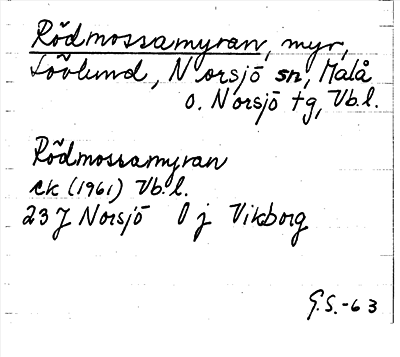 Rödmossamyran, myr,
Löölund, Norsjö sn, Malå
o. Norsjö tg, Vb.l.
Rödmossamyran
ek (1961) Vb.l.
23 J Norsjö 0 j Vikborg
G.S.-63